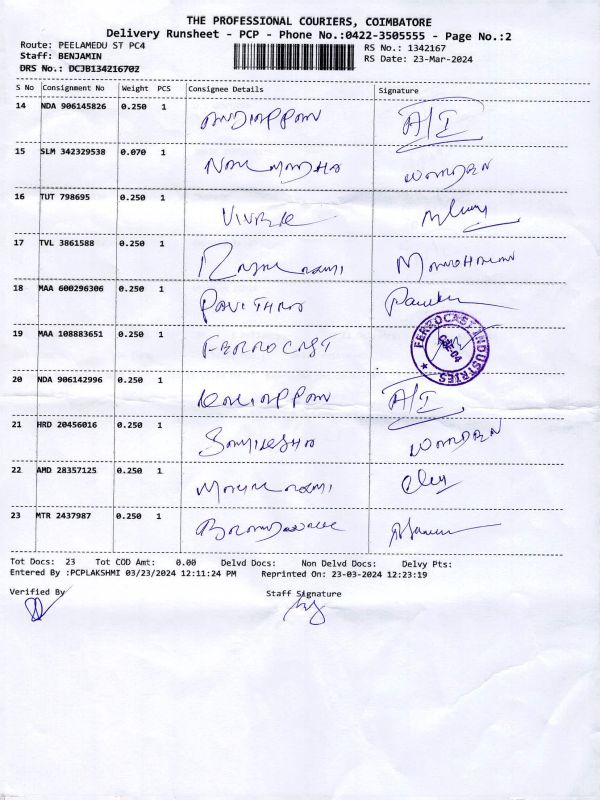 THE PROFESSIONAL COURIERS, COIMBATORE
Delivery Runsheet - PCP - Phone No.:0422-3505555 - Page No.:2
Route: PEELAMEDU ST PC4
RS No.: 1342167
Staff: BENJAMIN
RS Date: 23-Mar-2024
DRS No.: DCJB134216702
S No Consignment No Weight PCS Consignee Details Signature
14 NDA 906145826 0.250 1 ANDIAPPAN A/I
15 SLM 342329538 0.070 1 WARDEN
16 TUT 798695 0.250 1 VIVEK
17 TVL 3861588 0.250 1 MANOHARAN
18 MAA 600296306 0.250 1 PAVITHRA
19 MAA 108883651 0.250 1 FERROCAST
FERROCAST INDUSTRIES
CBE-04
20 NDA 906142996 0.250 1 KALIAPPAN A/I
21 HRD 20456016 0.250 1 WARDEN
22 AMD 28357125 0.250 1
23 MTR 2437987 0.250 1
Tot Docs: 23 Tot COD Amt: 0.00 Delvd Docs: Non Delvd Docs: Delvy Pts:
Entered By :PCPLAKSHMI 03/23/2024 12:11:24 PM Reprinted On: 23-03-2024 12:23:19
Verified By Staff Signature